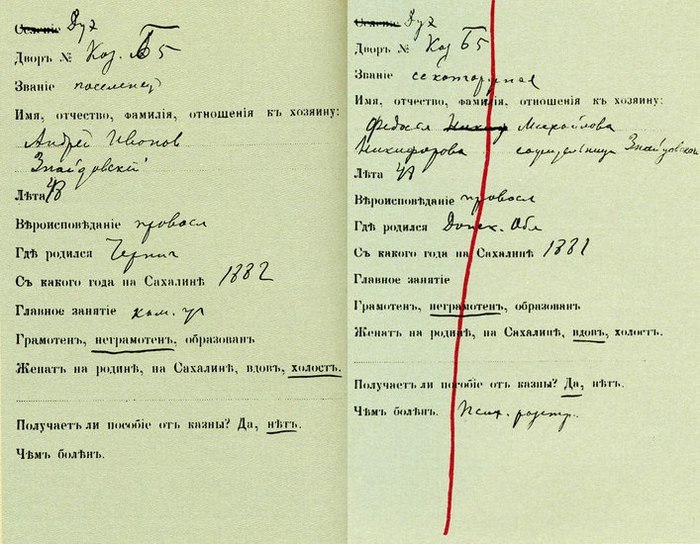 Селенiе Дуэ
Дворъ № Каз. 55
Званiе поселенец
Имя, отчество, фамилiя, отношенiя къ хозяину:
Андрей Иванов
Знайдовский
Лѣта 48
Вѣроисповѣданiе правосл
Гдѣ родился Черниг
Съ какого года на Сахалинѣ 1882
Главное занятiе
Грамотенъ, неграмотенъ, образованъ
Женатъ на родинѣ, на Сахалинѣ, вдовъ, холостъ.
Получаетъ ли пособiе отъ казны? Да, нѣтъ.
Чѣмъ боленъ.
Селенiе Дуэ
Дворъ № Каз 55
Званiе с.-каторжная
Имя, отчество, фамилiя, отношенiя къ хозяину:
Федосья Михайлова
Никифорова сожительница Знайдовского
Лѣта
Вѣроисповѣданiе правосл
Гдѣ родился Донск. Обл
Съ какого года на Сахалинѣ 1881
Главное занятiе
Грамотенъ, неграмотенъ, образованъ
Женатъ на родинѣ, на Сахалинѣ, вдовъ, холостъ.
Получаетъ ли пособiе отъ казны? Да, нѣтъ.
Чѣмъ боленъ. Псих. расстр.